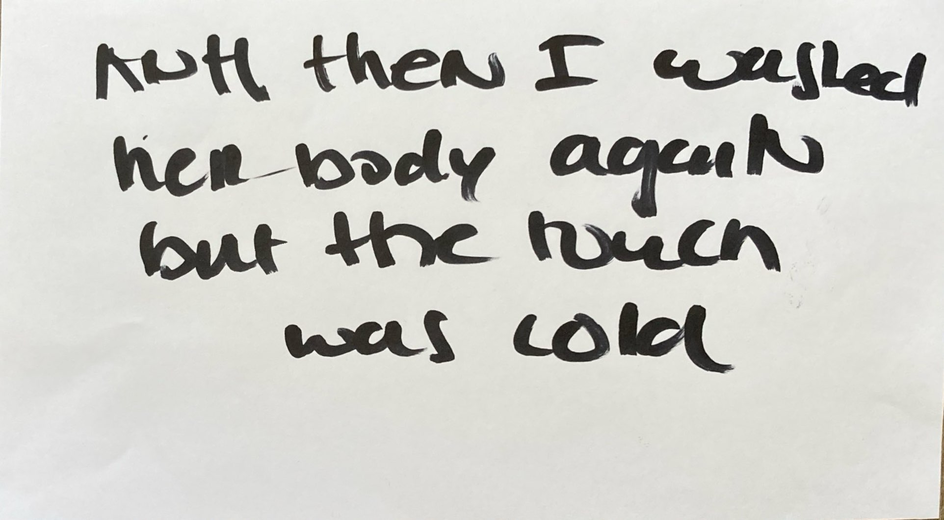 And then I washed
her body again
but the touch
was cold